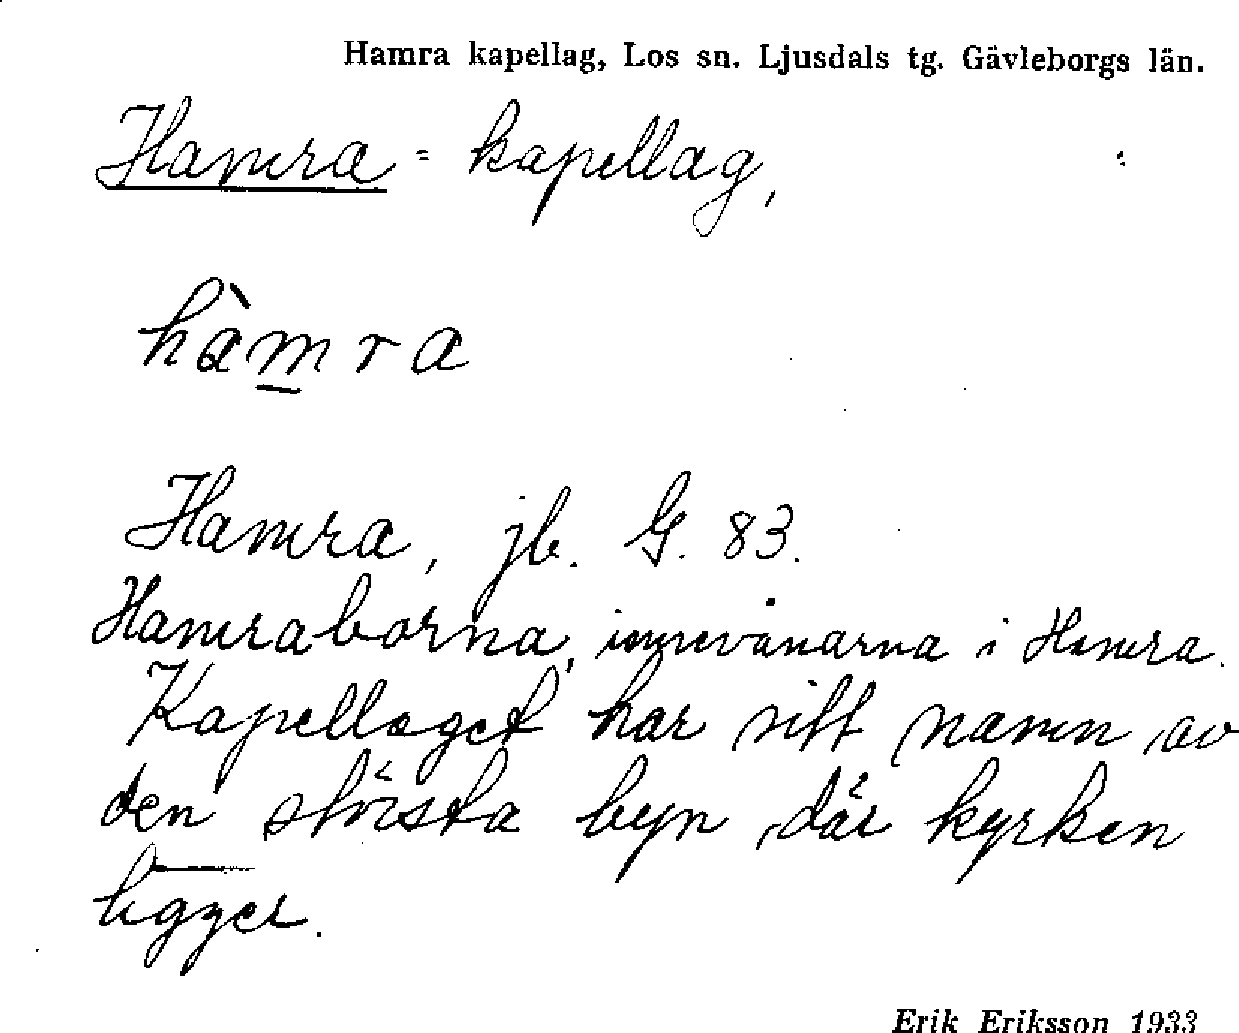 Hamra kapellag, Los sn. Ljusdals tg. Gävleborgs län.
Hamra = kapellag,
hàmra
Hamra, jb. G. 83.
Hamraborna, innevånarna i Hamra.
Kapellaget har sitt namn av
den största byn, där kyrkan
ligger.
Erik Eriksson 1933